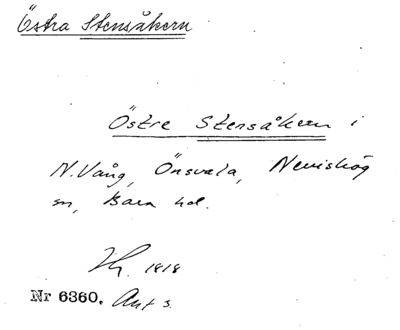 Östra Stensåkern
Östre Stensåkern i
N. Vång, Önsvala, Nevishög
sn, Bara hd.
1818
Nr 6360. Akt 3.